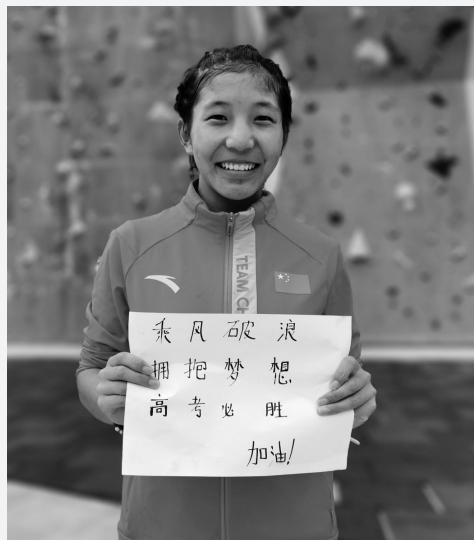 TEAM CH
乘风破浪
拥抱梦想
高考必胜
加油!